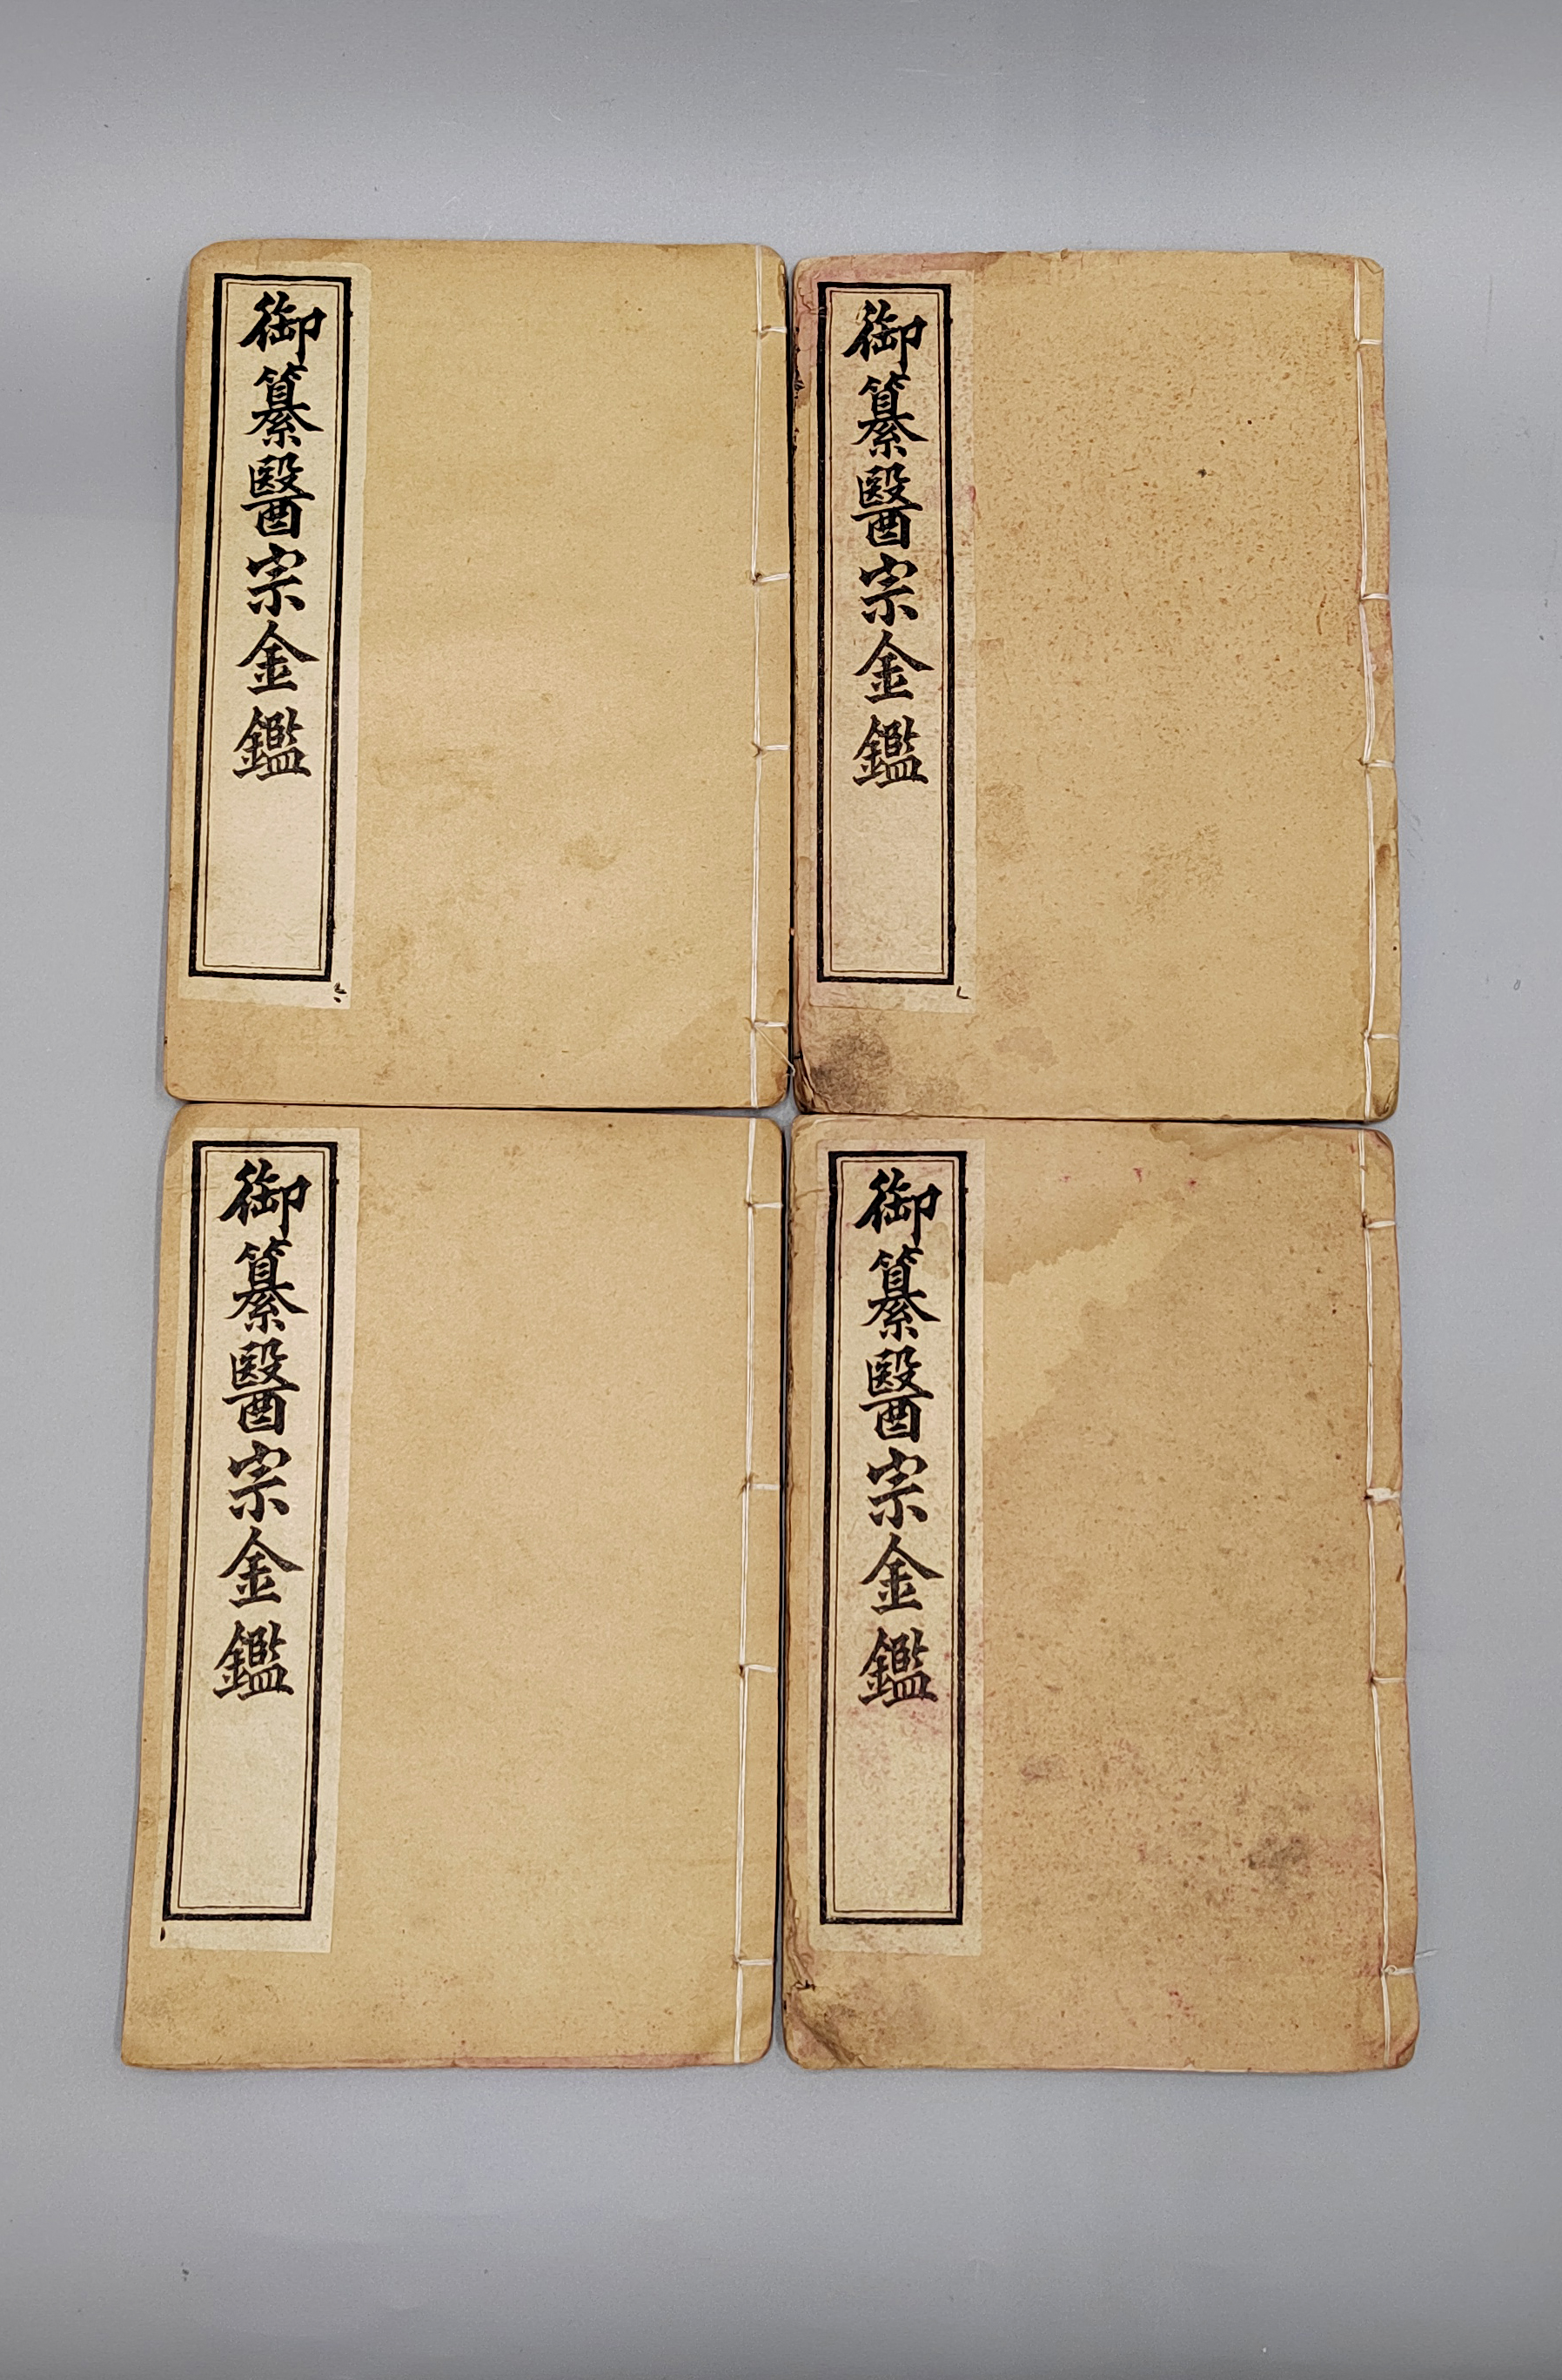 御纂醫宗金鑑
御纂醫宗金鑑
御纂醫宗金鑑
御纂醫宗金鑑